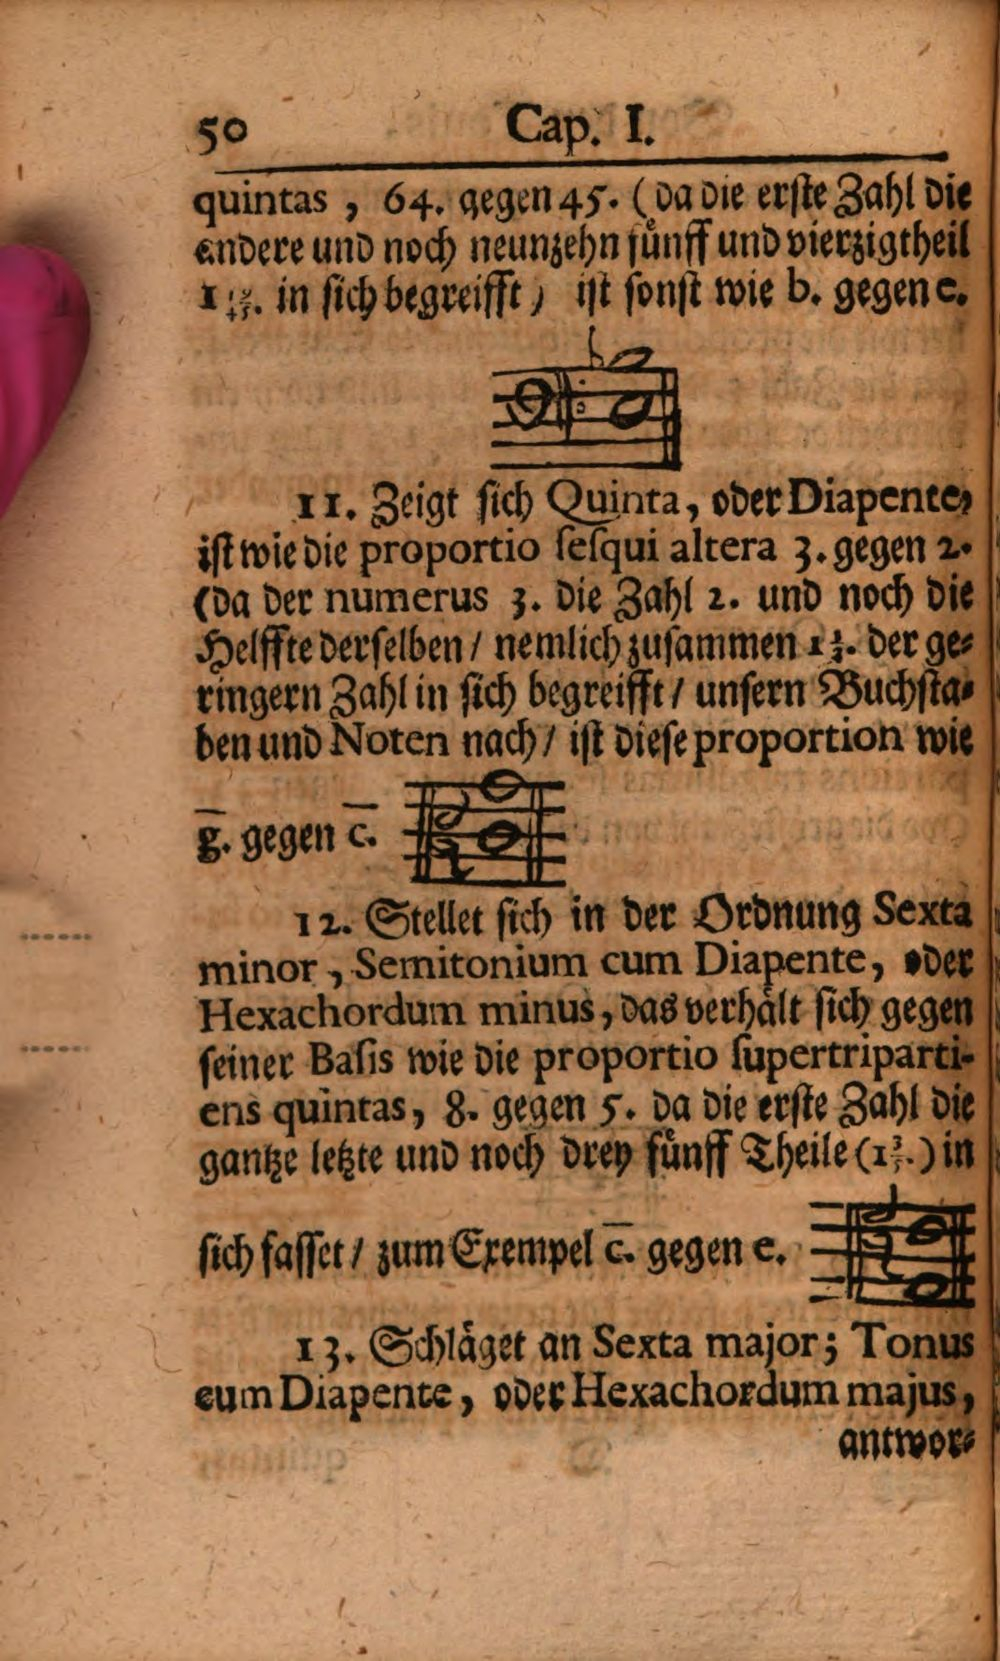 50 Cap. I.
quintas, 64. gegen 45. (da die erste Zahl die
andere und noch neunzehn fünff und vierzigtheil
1 19/45. in sich begreifft) ist sonst wie b. gegen e.
11. Zeigt sich Quinta, oder Diapente,
ist wie die proportio sesqui altera 3. gegen 2.
(da der numerus 3. die Zahl 2. und noch die
Helffte derselben / nemlich zusammen 1 1/2. der ge-
ringern Zahl in sich begreifft / unsern Buchsta-
ben und Noten nach / ist diese proportion wie
g̅. gegen c̅.
12. Stellet sich in der Ordnung Sexta
minor, Semitonium cum Diapente, oder
Hexachordum minus, das verhält sich gegen
seiner Basis wie die proportio supertriparti-
ens quintas, 8. gegen 5. da die erste Zahl die
gantze letzte und noch drey fünff Theile (1 3/5.) in
sich fasset / zum Exempel c̅. gegen e.
13. Schläget an Sexta major; Tonus
cum Diapente, oder Hexachordum majus,
antwor-